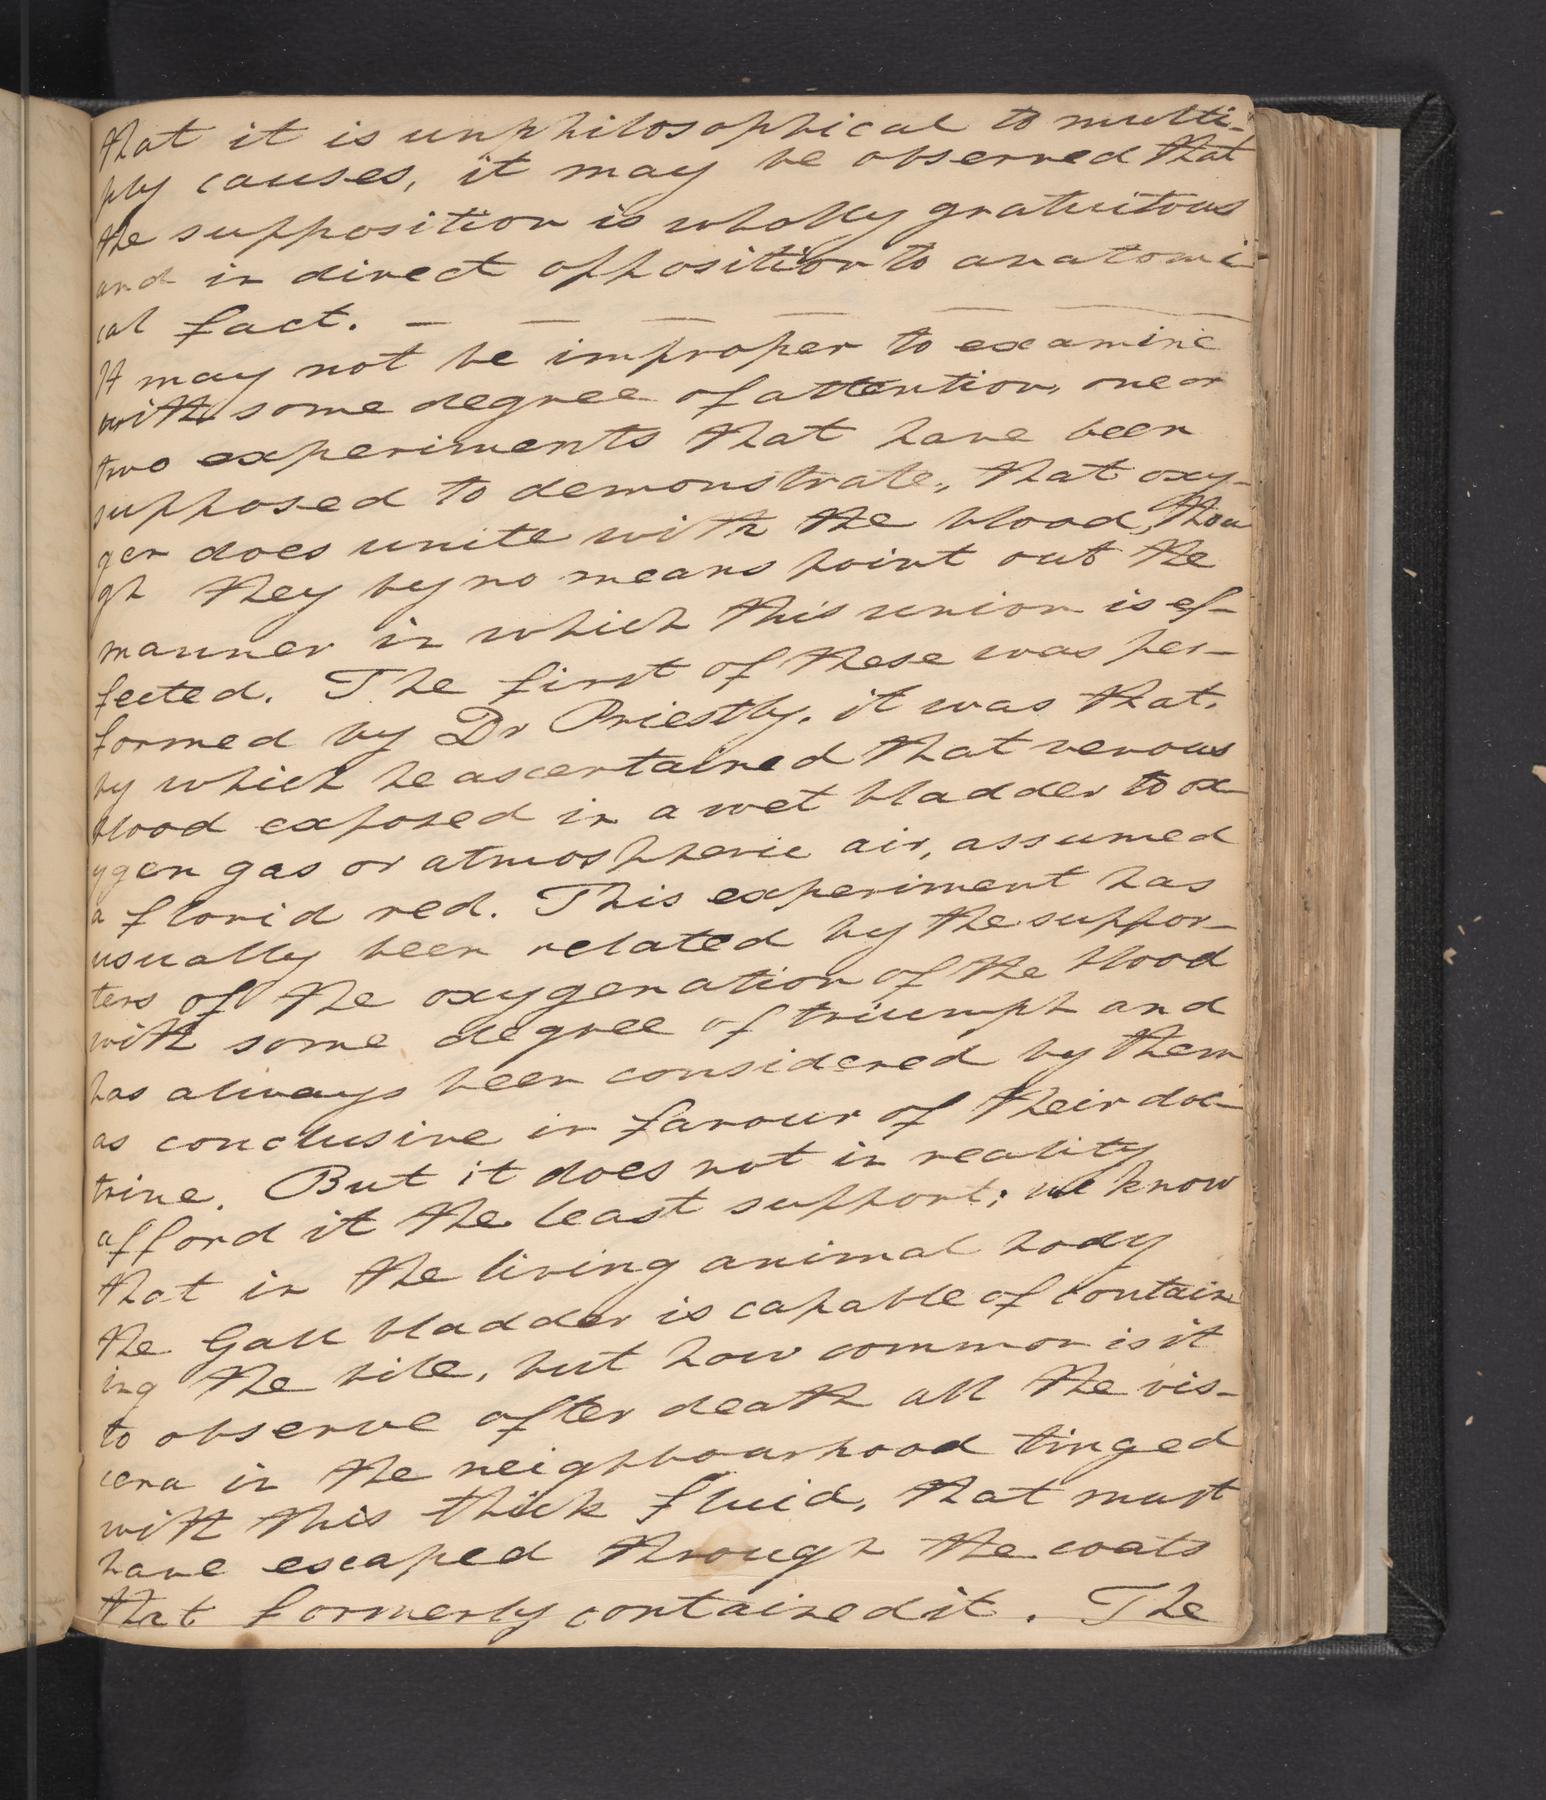 that it is unphilosophical to multi-
ply causes, it may be observed that
the supposition is wholly gratuitous
and in direct opposition to anatomi
cal fact. — — — — — —
It may not be improper to examine
with some degree of attention, one or
two experiments that have been
supposed to demonstrate, that oxy-
gen does unite with the blood, thou
gh they by no means point out the
manner in which this union is ef-
fected. The first of these was per-
formed by Dr Priestly. it was that.
by which he ascertained that venous
blood exposed in a wet bladder to ox-
ygen gas or atmospheric air, assumed
a florid red. This experiment has
usually been related by the suppor-
ters of the oxygenation of the blood
with some degree of triumph and
has always been considered by them
as conclusive in favour of their doc-
trine. But it does not in reality
afford it the least support; we know
that in the living animal body
the Gall bladder is capable of contain
ing the bile, but how common is it
to observe after death all the vis-
cera in the neighbourhood tinged
with this thick fluid, that must
have escaped through the coats
that formerly contained it. The